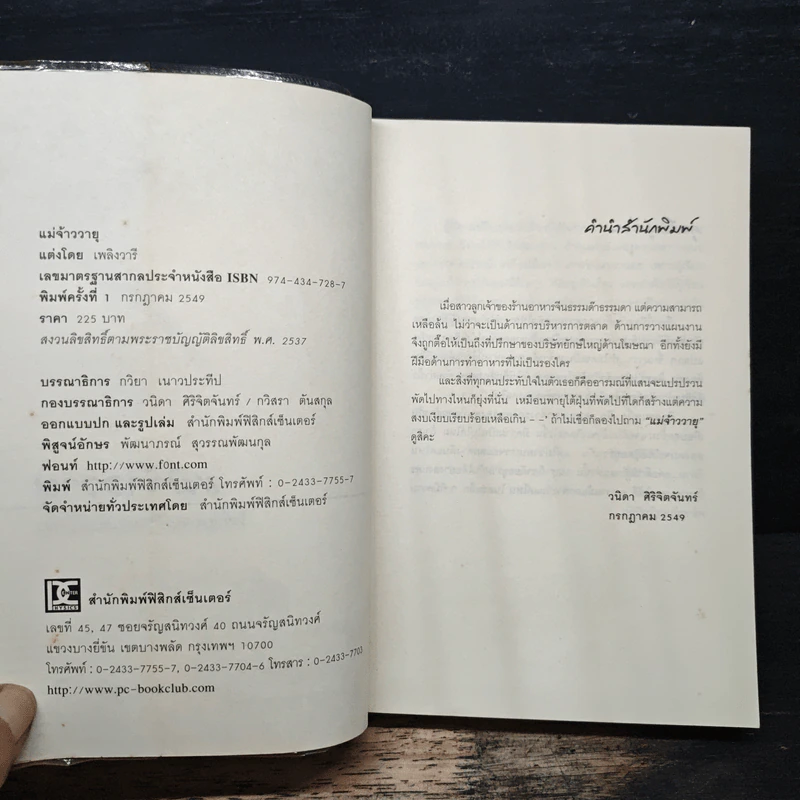 แม่จ้าววายุ
แต่งโดย เพลิงวารี
เลขมาตรฐานสากลประจำหนังสือ ISBN 974-434-728-7
พิมพ์ครั้งที่ 1 กรกฎาคม 2549
ราคา 225 บาท
สงวนลิขสิทธิ์ตามพระราชบัญญัติลิขสิทธิ์ พ.ศ. 2537
บรรณาธิการ กวิยา เนาวประทีป
กองบรรณาธิการ วนิดา ศิริจิตจันทร์ / กวิสรา ตันสกุล
ออกแบบปก และรูปเล่ม สำนักพิมพ์ฟิสิกส์เซ็นเตอร์
พิสูจน์อักษร พัฒนาภรณ์ สุวรรณพัฒนกุล
ฟอนท์ http://www.f0nt.com
พิมพ์ สำนักพิมพ์ฟิสิกส์เซ็นเตอร์ โทรศัพท์ : 0-2433-7755-7
จัดจำหน่ายทั่วประเทศโดย สำนักพิมพ์ฟิสิกส์เซ็นเตอร์
สำนักพิมพ์ฟิสิกส์เซ็นเตอร์
เลขที่ 45, 47 ซอยจรัญสนิทวงศ์ 40 ถนนจรัญสนิทวงศ์
แขวงบางยี่ขัน เขตบางพลัด กรุงเทพฯ 10700
โทรศัพท์ : 0-2433-7755-7, 0-2433-7704-6 โทรสาร : 0-2433-7703
http://www.pc-bookclub.com
คำนำสำนักพิมพ์
เมื่อสาวลูกเจ้าของร้านอาหารจีนธรรมด๊าธรรมดา แต่ความสามารถ
เหลือล้น ไม่ว่าจะเป็นด้านการบริหารการตลาด ด้านการวางแผนงาน
จึงถูกตื๊อให้เป็นถึงที่ปรึกษาของบริษัทยักษ์ใหญ่ด้านโฆษณา อีกทั้งยังมี
ฝีมือด้านการทำอาหารที่ไม่เป็นรองใคร
และสิ่งที่ทุกคนประทับใจในตัวเธอก็คืออารมณ์ที่แสนจะแปรปรวน
พัดไปทางไหนก็ยุ่งที่นั่น เหมือนพายุไต้ฝุ่นที่พัดไปที่ใดก็สร้างแต่ความ
สงบเงียบเรียบร้อยเหลือเกิน - -' ถ้าไม่เชื่อก็ลองไปถาม "แม่จ้าววายุ"
ดูสิคะ
วนิดา ศิริจิตจันทร์
กรกฎาคม 2549